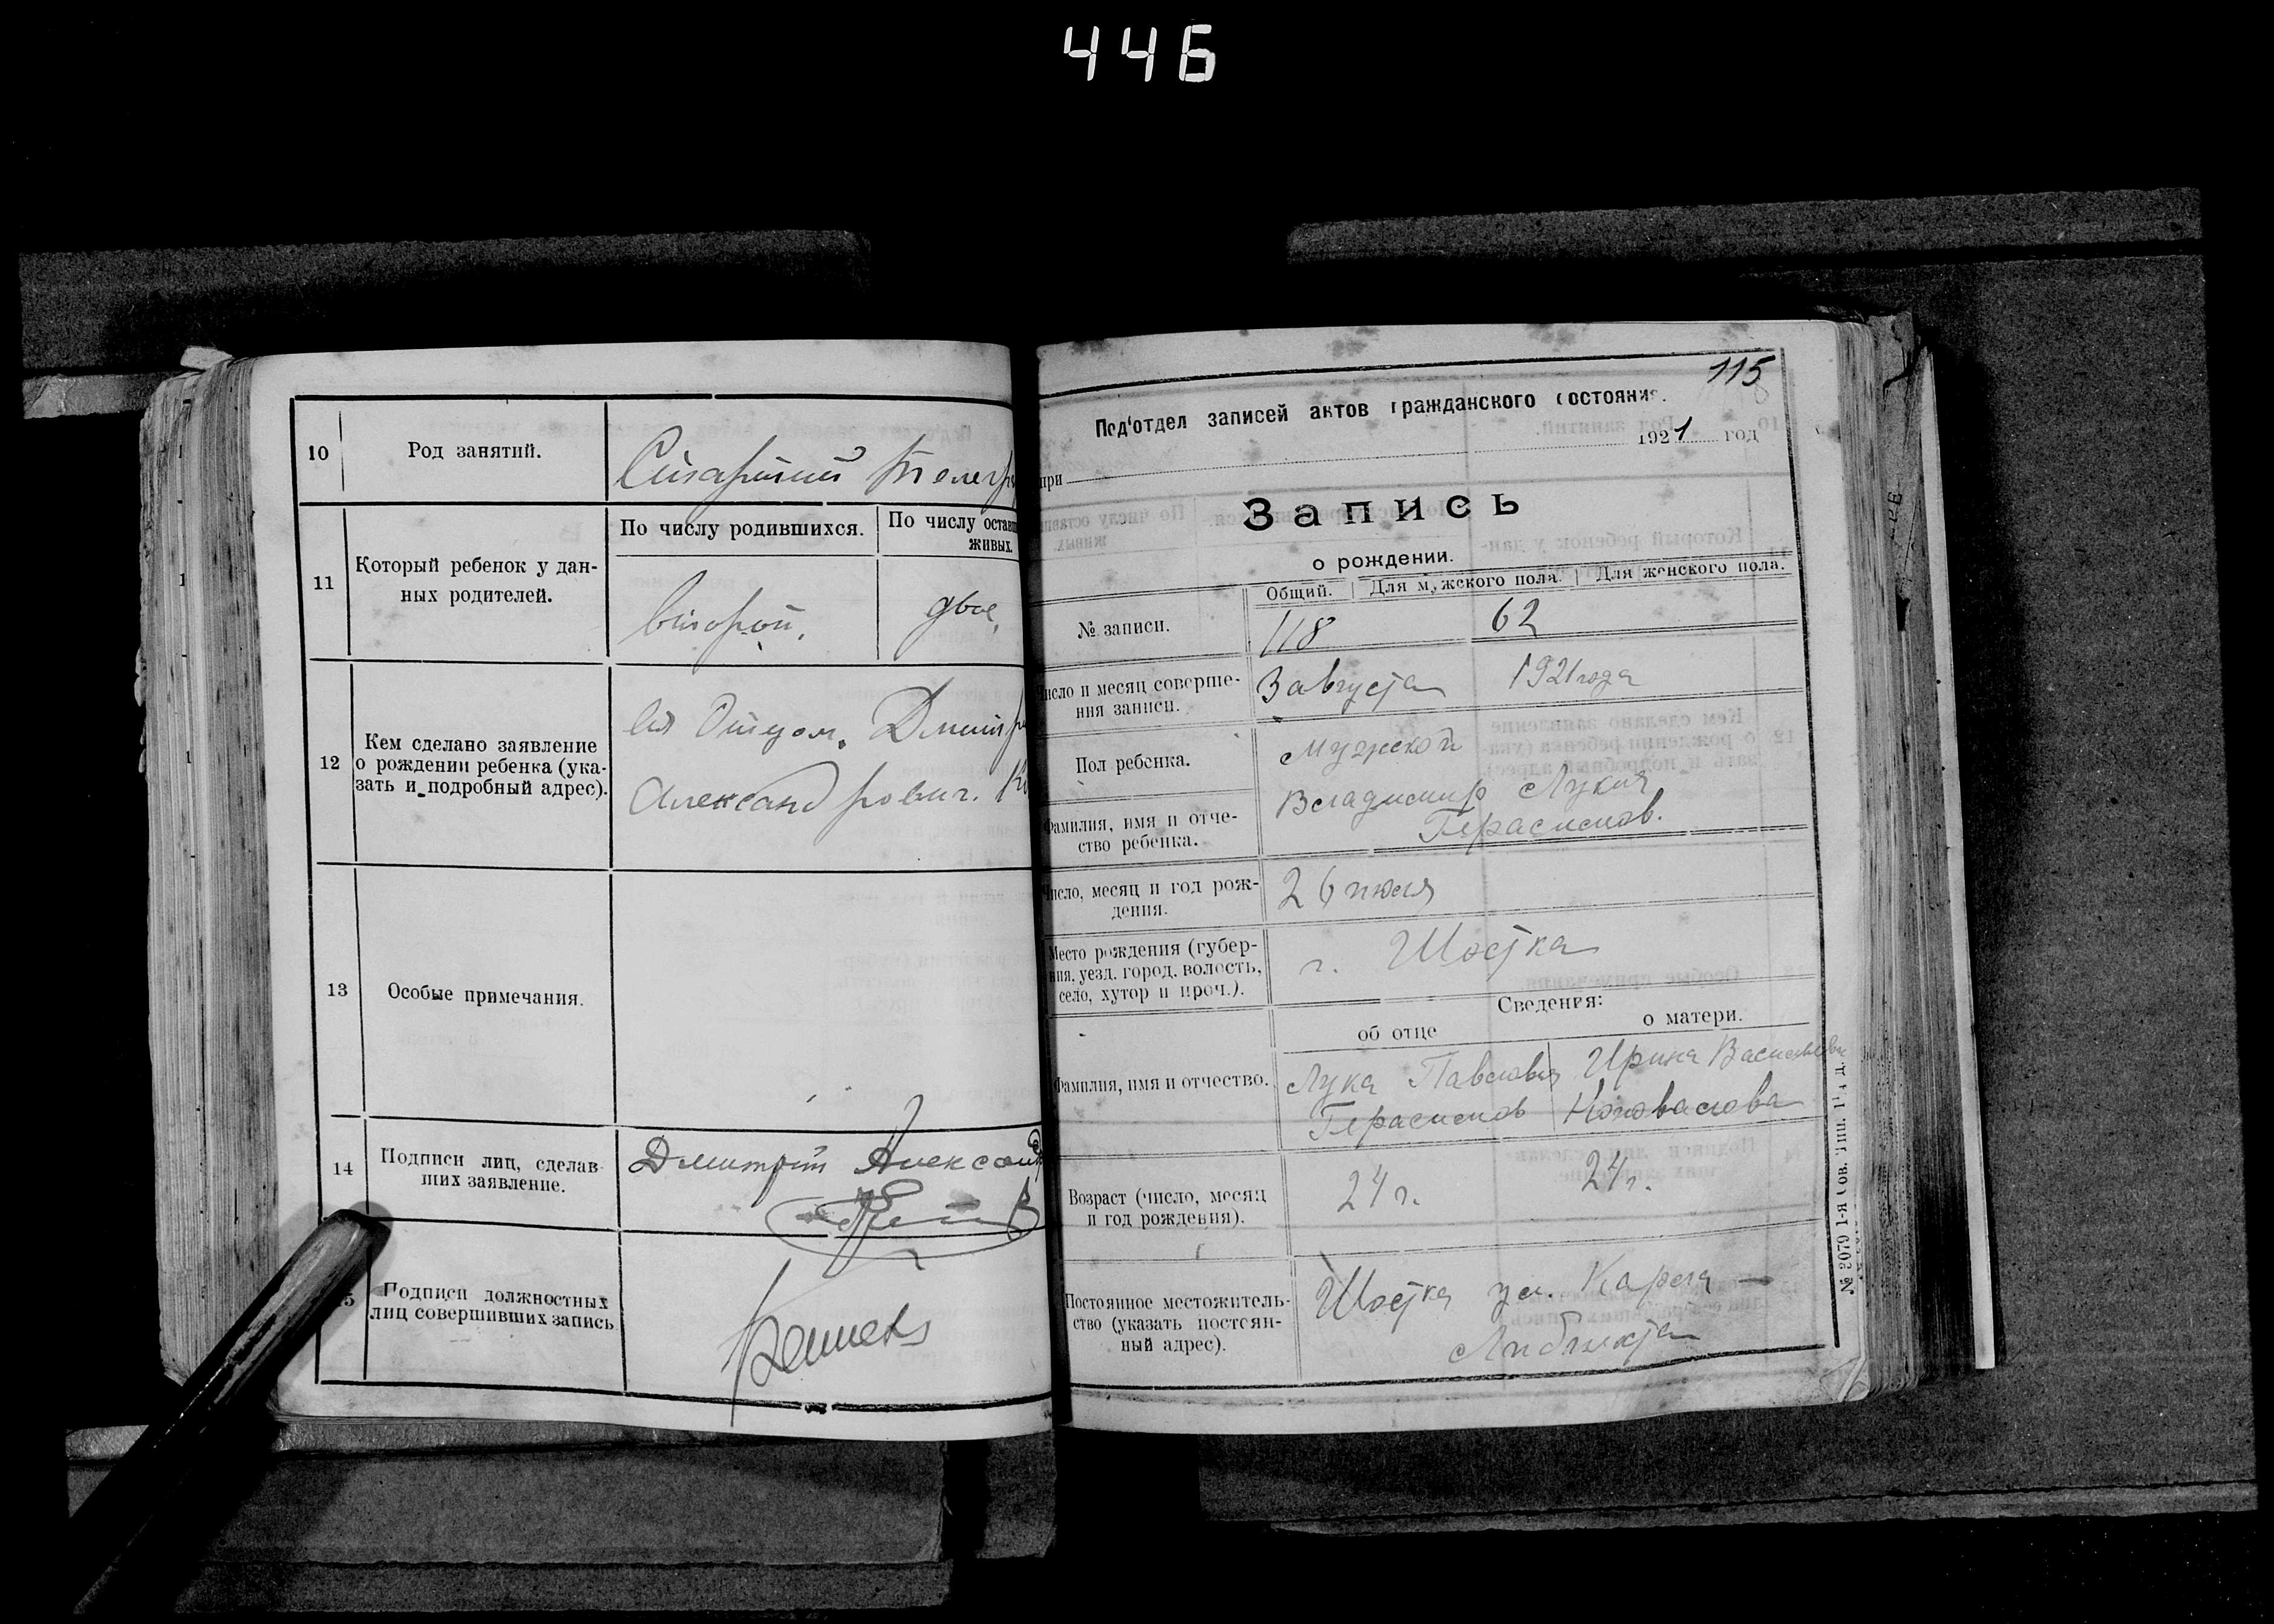 446
10
Род занятий.
Старший Телегр
11
Который ребенок у дан-
ных родителей.
По числу родившихся.
По числу оставш
живых.
второй,
двое,
12
Кем сделано заявление
о рождении ребенка (ука-
зать и подробный адрес).
Отцом. Дмитр
Александрович.
13
Особые примечания.
14
Подписи лиц, сделав-
ших заявление.
Дмитрий Александ
15
Подписи должностных
лиц совершивших запись
115
Под‘отдел записей актов гражданского состояния.
при
1921 год
Запись
о рождении.
Общий.
Для мужского пола.
Для женского пола.
№ записи.
118
62
Число и месяц соверше-
ния записи.
3 августа 1921 года
Пол ребенка.
Мужской
Фамилия, имя и отче-
ство ребенка.
Владимир Лукич
Герасимов.
Число, месяц и год рож-
дения.
26 июля
Место рождения (губер-
ния, уезд, город, волость,
село, хутор и проч.).
г. Шостка
Сведения:
об отце
о матери.
Фамилия, имя и отчество.
Лука Павлович
Герасимов
Ирина Васильевна
Коновалова
Возраст (число, месяц
и год рождения).
24 г.
24 г.
Постоянное местожитель-
ство (указать постоян-
ный адрес).
Шостка ул. Карла —
Либкнехта